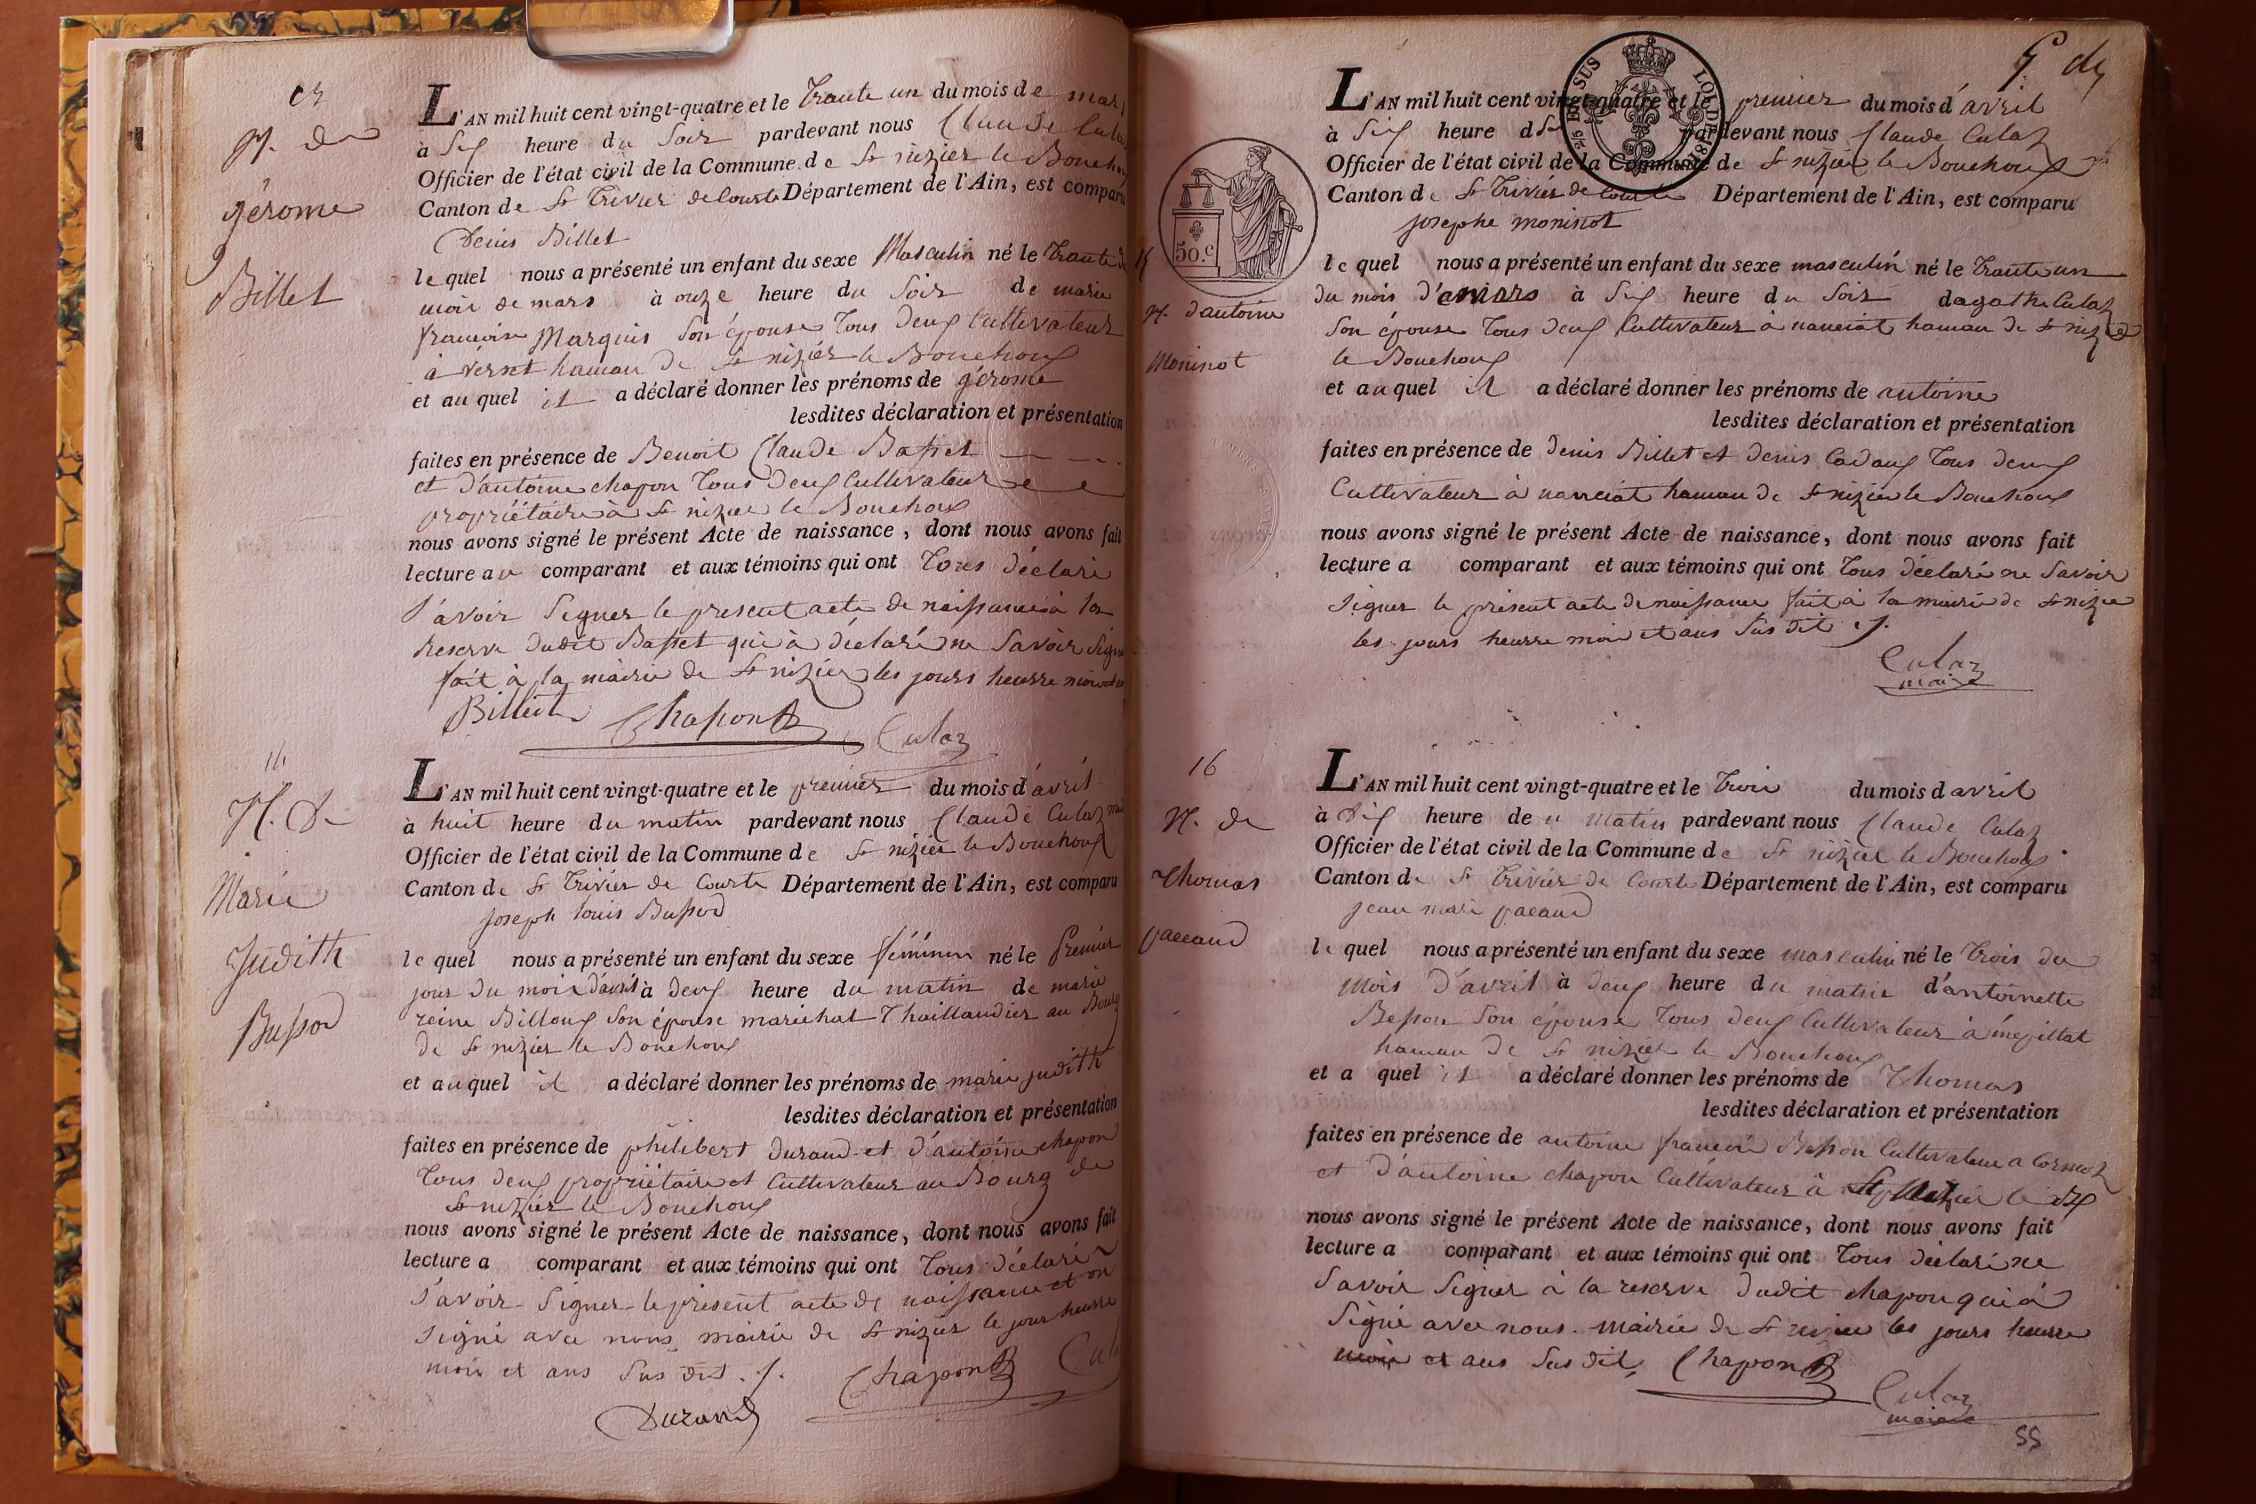 N. de
gérome
Billet
L'AN mil huit cent vingt-quatre et le trante un du mois de mars
à six heure du soir pardevant nous Claude Culaz
Officier de l'état civil de la Commune de St nizier le Bouchoux
Canton de St Trivier de Courte Département de l'Ain, est comparu
Denis Billet
le quel nous a présenté un enfant du sexe Masculin né le trante
mois de mars à onze heure du soir de marie
francoise Marquis son épouse tous deux Cultivateur
à verset hamau de St nizier le Bouchoux
et au quel il a déclaré donner les prénoms de gérome
lesdites déclaration et présentation
faites en présence de Benoit Claude Basset
et d'antoine chapon tous deux Cultivateur et
propriétaire à St nizier le Bouchoux
nous avons signé le présent Acte de naissance, dont nous avons fait
lecture au comparant et aux témoins qui ont tous déclaré
savoir signer le present acte de naissance à la
reserve dudit Basset qui à déclaré ne savoir signer
fait à la mairie de St nizier les jours heurre mois
Billet Chapon Culaz
14
N. de
Marie
Judith
Bussod
L'AN mil huit cent vingt-quatre et le premier du mois d'avril
à huit heure du matin pardevant nous Claude Culaz
Officier de l'état civil de la Commune de St nizier le Bouchoux
Canton de St Trivier de Courte Département de l'Ain, est comparu
joseph louis Bussod
le quel nous a présenté un enfant du sexe féminin né le Premier
jour du mois d'avril à deux heure du matin de marie
reine Billoux son épouse marechal Thaillaudier au Bourg
de St nizier le Bouchoux
et au quel il a déclaré donner les prénoms de marie judith
lesdites déclaration et présentation
faites en présence de philibert durand et d'antoine chapon
tous deux propriétaire et Cultivateur au Bourg de
St nizier le Bouchoux
nous avons signé le présent Acte de naissance, dont nous avons fait
lecture a comparant et aux témoins qui ont tous déclaré
savoir signer le present acte de naissance et on
signé avec nous mairie de St nizier le jour heurre
mois et ans sus dit ./.
Chapon Cul
Durand
50.c
N. d'antoine
Moninot
L'AN mil huit cent vingt-quatre et le premier du mois d'avril
à six heure d pardevant nous Claude Culaz
Officier de l'état civil de la Commune de St nizier le Bouchoux
Canton de St Trivier de Courte Département de l'Ain, est comparu
josephe moninot
le quel nous a présenté un enfant du sexe masculin né le trante un
du mois d' mars à six heure du soir dagathe Culaz
son épouse tous deux Cultivateur à nanciat hamau de St nizie
le Bouchoux
et au quel il a déclaré donner les prénoms de antoine
lesdites déclaration et présentation
faites en présence de denis Billet et denis Cadoux tous deux
Cultivateur à nanciat hamau de St nizier le Bouchoux
nous avons signé le présent Acte de naissance, dont nous avons fait
lecture a comparant et aux témoins qui ont tous déclaré ne savoir
signer le présent acte de naissance fait à la mairie de St nizie
les jours heurre mois et ans sus dit ./.
Culaz
maire
16
N. de
Thomas
pacaud
L'AN mil huit cent vingt-quatre et le trois du mois d avril
à dix heure de u matin pardevant nous Claude Culaz
Officier de l'état civil de la Commune de St nizier le Bouchoux
Canton de St Trivier de Courte Département de l'Ain, est comparu
jean marie pacaud
le quel nous a présenté un enfant du sexe masculin né le trois du
mois d'avril à deux heure du matin d'antoinette
Besson son épouse tous deux Cultivateur à mépillat
hamau de St nizier le Bouchoux
et a quel il a déclaré donner les prénoms de Thomas
lesdites déclaration et présentation
faites en présence de antoine francois Besson Cultivateur a Cormoz
et d'antoine chapon Cultivateur à St nizier le
nous avons signé le présent Acte de naissance, dont nous avons fait
lecture a comparant et aux témoins qui ont tous déclaré ne
savoir signer à la reserve dudit chapon qui à
signé avec nous mairie de St nizier les jours heurre
mois et ans sus dit Chapon
Culaz
maire
55